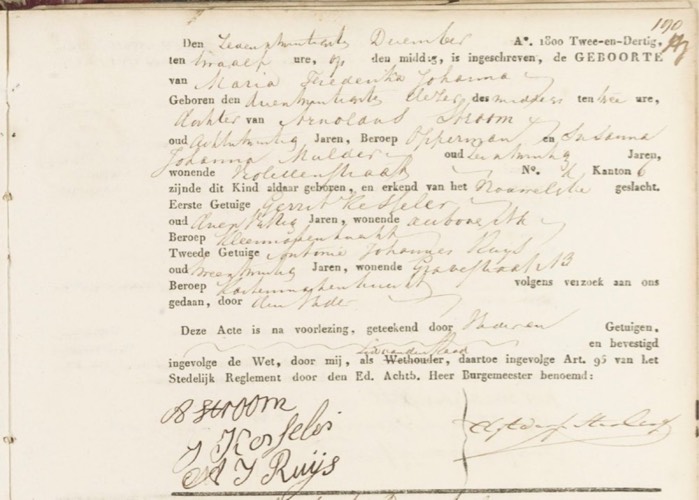 190
Den Zevenentwintigste December A°. 1800 Twee-en-Dertig,
ten twaalf ure, op den middag, is ingeschreven, de GEBOORTE
van Maria Frederika Johanna
Geboren den drieentwintigste dezer des middags ten twee ure,
dochter van Arnoldus Stroom
oud achtentwintig Jaren, Beroep Opperman en Susanna
Johanna Mulder oud Jaren,
wonende No. Kanton 6
zijnde dit Kind aldaar geboren, en erkend van het Vrouwelijke geslacht.
Eerste Getuige Gerrit Kesseler
oud Jaren, wonende
Beroep Kleermakersknecht
Tweede Getuige Antonie Johannes Ruys
oud Jaren, wonende Gravestraat
Beroep volgens verzoek aan ons
gedaan, door den Vader
Deze Acte is na voorlezing, geteekend door Vader en Getuigen,
en bevestigd
ingevolge de Wet, door mij, als Wethouder, daartoe ingevolge Art. 95 van het
Stedelijk Reglement door den Ed. Achtb. Heer Burgemeester benoemd:
A Stroom
Kesseler
A J Ruijs